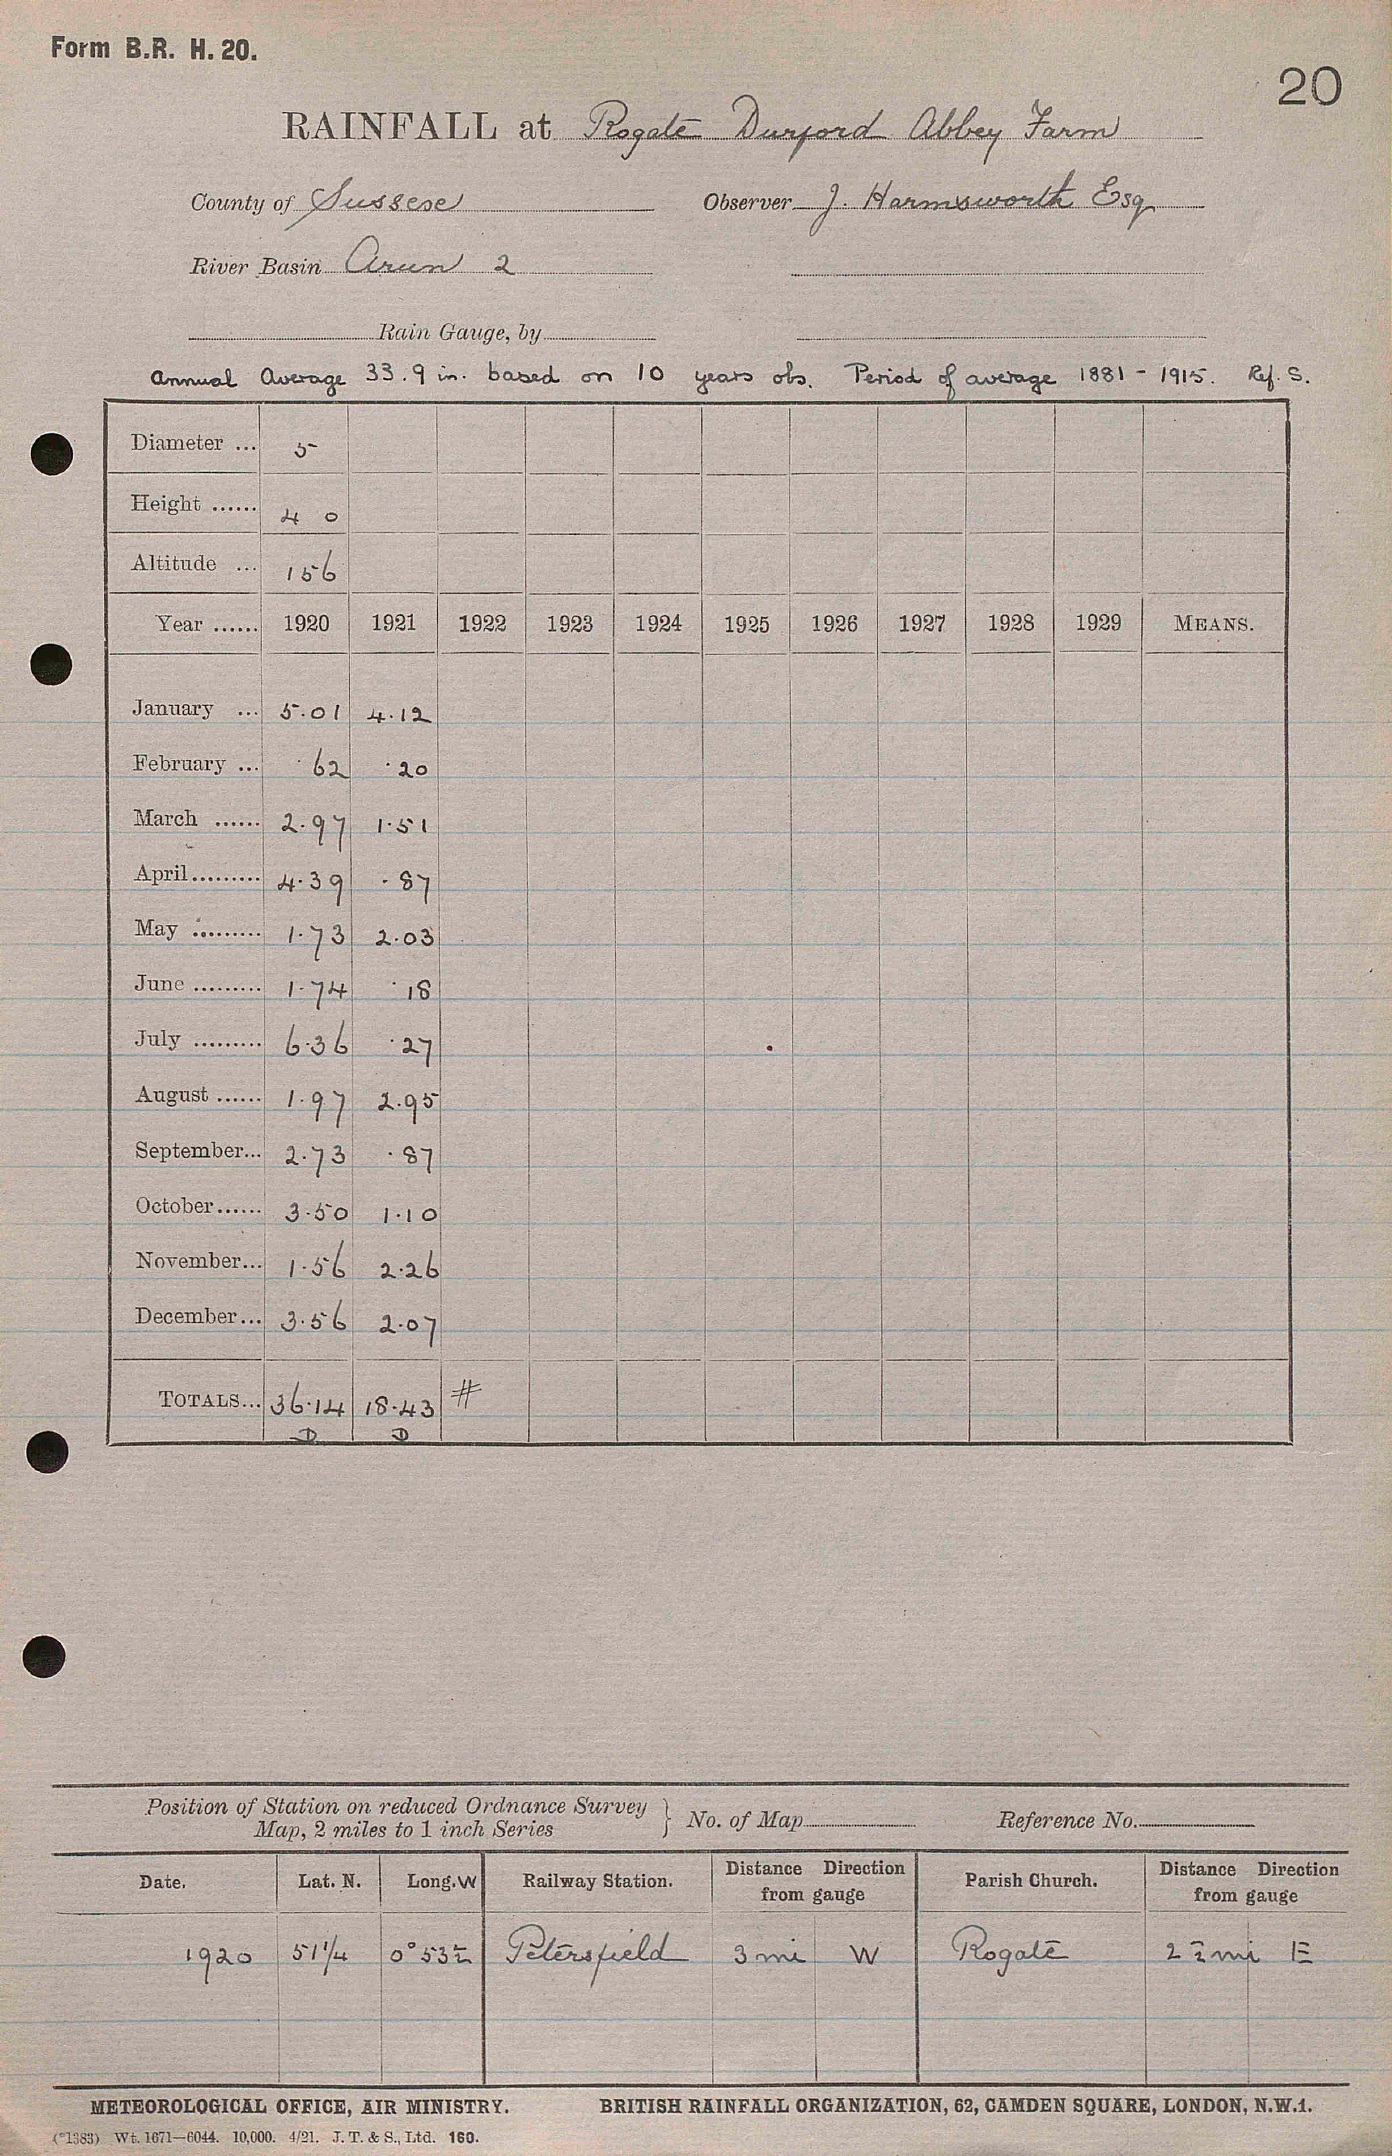 Form B.R. H. 20.
20
RAINFALL at Rogate Durford Abbey Farm
County of Sussex Observer J. Harmsworth Esq
River Basin Arun 2
Rain Gauge, by
Annual Average 33.9 in. based on 10 years obs. Period of average 1881 - 1915. Ref. S.
Diameter ... 5
Height ...... 4 0
Altitude ... 156
Year ...... 1920 1921 1922 1923 1924 1925 1926 1927 1928 1929 MEANS.
January ... 5.01 4.12
February ... .62 .20
March ...... 2.97 1.51
April ......... 4.39 .87
May ......... 1.73 2.03
June ......... 1.74 .18
July ......... 6.36 .27
August ...... 1.97 2.95
September... 2.73 .87
October ...... 3.50 1.10
November... 1.56 2.26
December... 3.56 2.07
TOTALS... 36.14 18.43 #
D D
Position of Station on reduced Ordnance Survey
Map, 2 miles to 1 inch Series } No. of Map Reference No.
Date. Lat. N. Long. W Railway Station. Distance Direction from gauge Parish Church. Distance Direction from gauge
1920 51 1/4 0° 53 1/2 Petersfield 3 mi W Rogate 2 1/2 mi E
METEOROLOGICAL OFFICE, AIR MINISTRY. BRITISH RAINFALL ORGANIZATION, 62, CAMDEN SQUARE, LONDON, N.W.1.
(*1383) Wt. 1671—6044. 10,000. 4/21. J. T. & S., Ltd. 160.